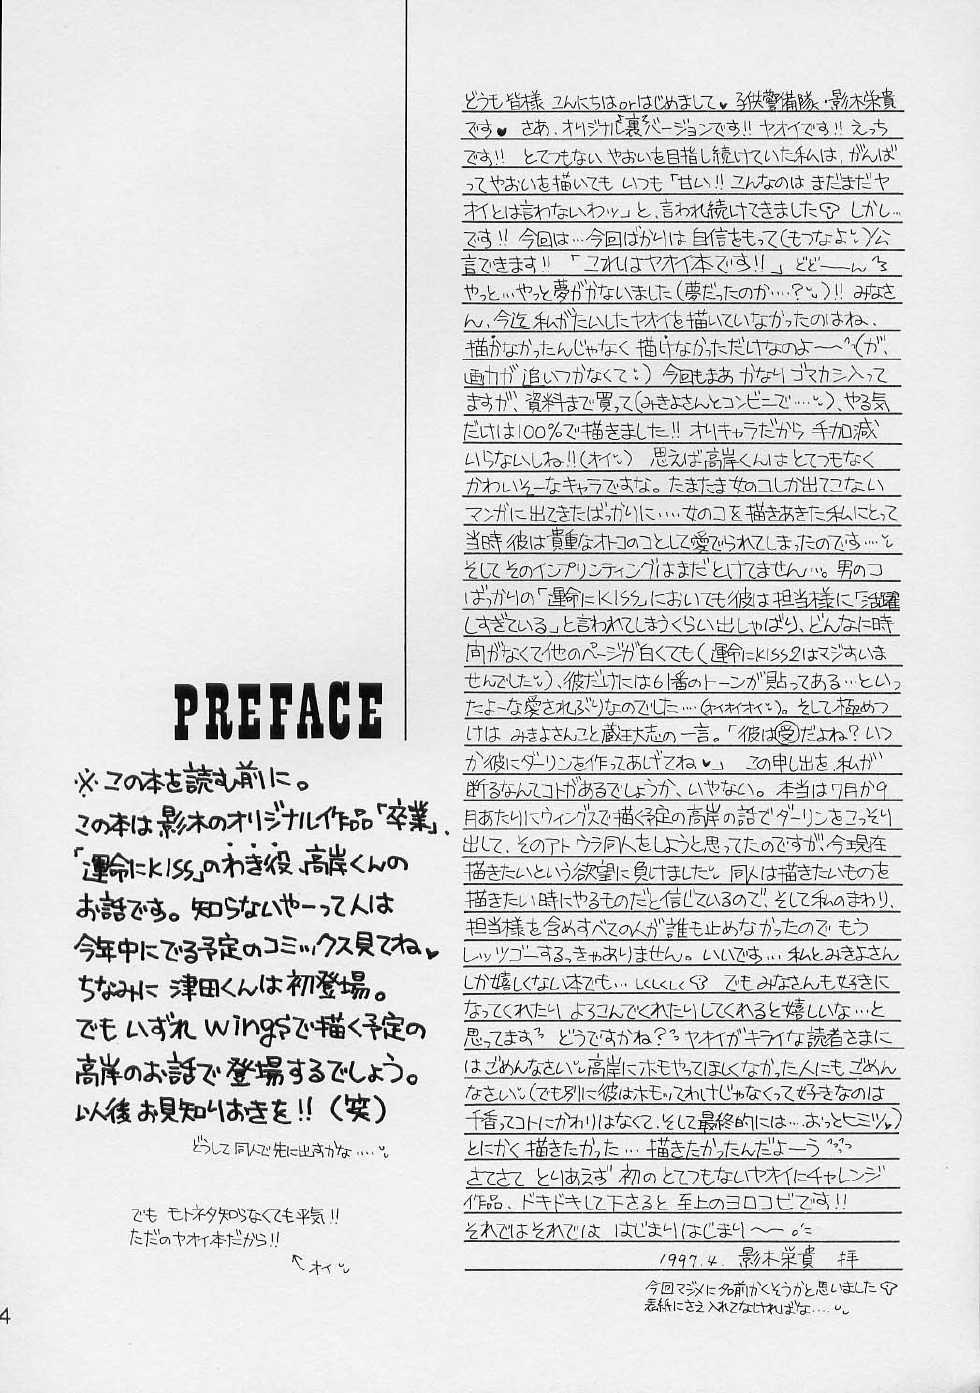 どうも皆様 こんにちはorはじめまして♥子供警備隊・影木栄貴
です♥ さあ、オリジナル"裏"バージョンです!! ヤオイです!! えっち
です!! とてつもない やおいを目指し続けていた私は、がんば
ってやおいを描いても いつも「甘い!! こんなのは まだまだヤ
オイとは言わないわッ」と、言われ続けてきました しかし…
です!! 今回は…今回ばかりは 自信をもって(もつなよ)公
言できます!! 「これはヤオイ本です!!」どどーーん
やっと…やっと夢がかないました(夢だったのか…?)!! みなさ
ん、今迄 私がたいしたヤオイを描いていなかったのはね、
描かなかったんじゃなく 描けなかっただけなのよ〜〜(が、
画力が 追いつかなくて) 今回もまあ かなり ゴマカシ入って
ますが、資料まで買って(みきよさんとコンビニで……)、やる気
だけは100%で描きました!! オリキャラだから 手加減
いらないしね!!(オイ) 思えば高岸くんはとてつもなく
かわいそーなキャラですな。たまたま女のコしか出てこない
マンガに出てきたばっかりに‥‥女のコを描きあきた私にとって
当時 彼は貴重なオトコのコとして愛でられてしまったのです‥‥
そしてそのインプリンティングはまだとけてません…。男のコ
ばっかりの「運命にKISS」においても彼は担当様に「活躍
しすぎている」と言われてしまうくらい出しゃばり、どんなに時
間がなくて他のページが白くても(運命にKISS2はマジすいま
せんでした)、彼だけには61番のトーンが貼ってある…といっ
たよーな愛されぶりなのでした…(オイオイオイ)。そして極めつ
けは みきよさんこと蔵王大志の一言。「彼は受だよね? いつ
か彼にダーリンを作ってあげてね♥」 この申し出を、私が
断るなんてコトがあるでしょうか、いやない。本当は7月か9
月あたりにウィングスで描く予定の高岸の話でダーリンをこっそり
出して、そのアトウラ同人をしようと思ってたのですが、今現在
描きたいという欲望に負けました 同人は描きたいものを
描きたい時にやるものだと信じているので、そして私のまわり、
担当様を含めすべての人が誰も止めなかったので もう
レッツゴーするっきゃありません。いいです…私とみきよさん
しか嬉しくない本でも… しくしく でもみなさんも好きに
なってくれたり よろこんでくれたりしてくれると嬉しいな…と
思ってます どうですかね? ヤオイがキライな読者さまに
はごめんなさい 高岸に ホモやってほしくなかった人にもごめん
なさい(でも別に彼はホモってわけじゃなくって好きなのは
千香ってコトにかわりはなくて、そして最終的には…おっとヒミツ♥)
とにかく描きたかった… 描きたかったんだよーう
さてさて とりあえず 初の とてつもないヤオイにチャレンジ
作品、ドキドキして下さると 至上のヨロコビです!!
それではそれでは はじまりはじまり〜〜
1997.4. 影木栄貴 拝
今回マジメに名前かくそうかと思いました
表紙にさえ入れてなければな‥‥
PREFACE
※この本を読む前に。
この本は影木のオリジナル作品「卒業」、
「運命にKISS」のわき役、高岸くんの
お話です。知らないやーって人は
今年中にでる予定のコミックス見てね♥
ちなみに 津田くんは初登場。
でも いずれ wingsで描く予定の
高岸のお話で登場するでしょう。
以後 お見知りおきを!! (笑)
どうして同人で先に出すかな‥‥
でも モトネタ知らなくても平気!!
ただのヤオイ本だから!!
オイ
4